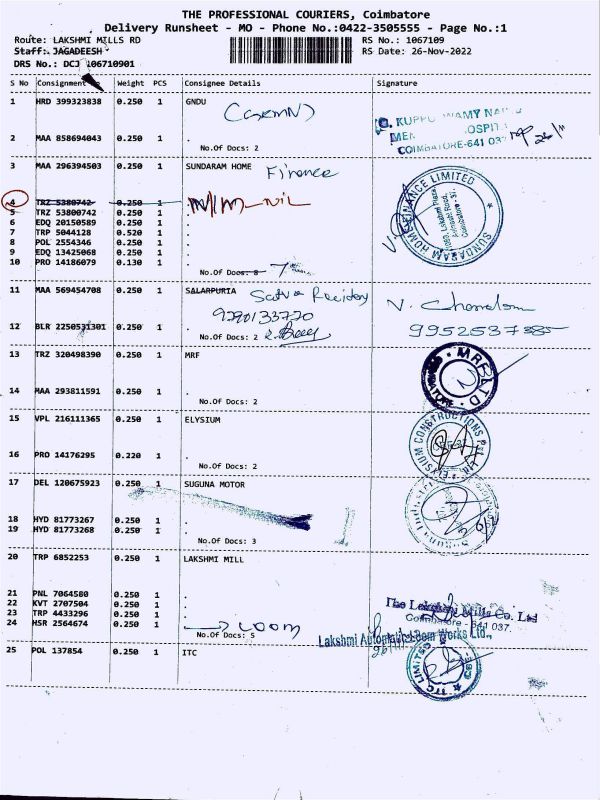 THE PROFESSIONAL COURIERS, Coimbatore
Delivery Runsheet - MO - Phone No.:0422-3505555 - Page No.:1
Route: LAKSHMI MILLS RD
RS No.: 1067109
Staff: JAGADEESH
RS Date: 26-Nov-2022
DRS No.: DCJ 106710901
S No Consignment Weight PCS Consignee Details Signature
1 HRD 399323838 0.250 1 GNDU
2 MAA 858694043 0.250 1 .
No.Of Docs: 2
COIMBATORE-641 037
3 MAA 296394503 0.250 1 SUNDARAM HOME Finance
4 TRZ 5380742 0.250 1 M/M-NIL
5 TRZ 53800742 0.250 1 .
6 EDQ 20150589 0.250 1 .
7 TRP 5044128 0.520 1 .
8 POL 2554346 0.250 1 .
9 EDQ 13425068 0.250 1 .
10 PRO 14186079 0.130 1 .
No.Of Docs: 8 7
SUNDARAM HOME FINANCE LIMITED
11 MAA 569454708 0.250 1 SALARPURIA
V. Chandran
9952537385
12 BLR 2250531301 0.250 1 .
No.Of Docs: 2
13 TRZ 320498390 0.250 1 MRF
MRF LTD
14 MAA 293811591 0.250 1 .
No.Of Docs: 2
15 VPL 216111365 0.250 1 ELYSIUM
ELYSIUM CONSTRUCTIONS
16 PRO 14176295 0.220 1 .
No.Of Docs: 2
17 DEL 120675923 0.250 1 SUGUNA MOTOR
18 HYD 81773267 0.250 1 .
19 HYD 81773268 0.250 1 .
No.Of Docs: 3
20 TRP 6852253 0.250 1 LAKSHMI MILL
21 PNL 7064580 0.250 1 .
22 KVT 2707504 0.250 1 .
23 TRP 4433296 0.250 1 .
24 HSR 2564674 0.250 1 . → Loom
No.Of Docs: 5
The Lakshmi Mills Co. Ltd
Coimbatore - 641 037.
Lakshmi Automatic Loom Works Ltd.,
25 POL 137854 0.250 1 ITC
ITC LIMITED